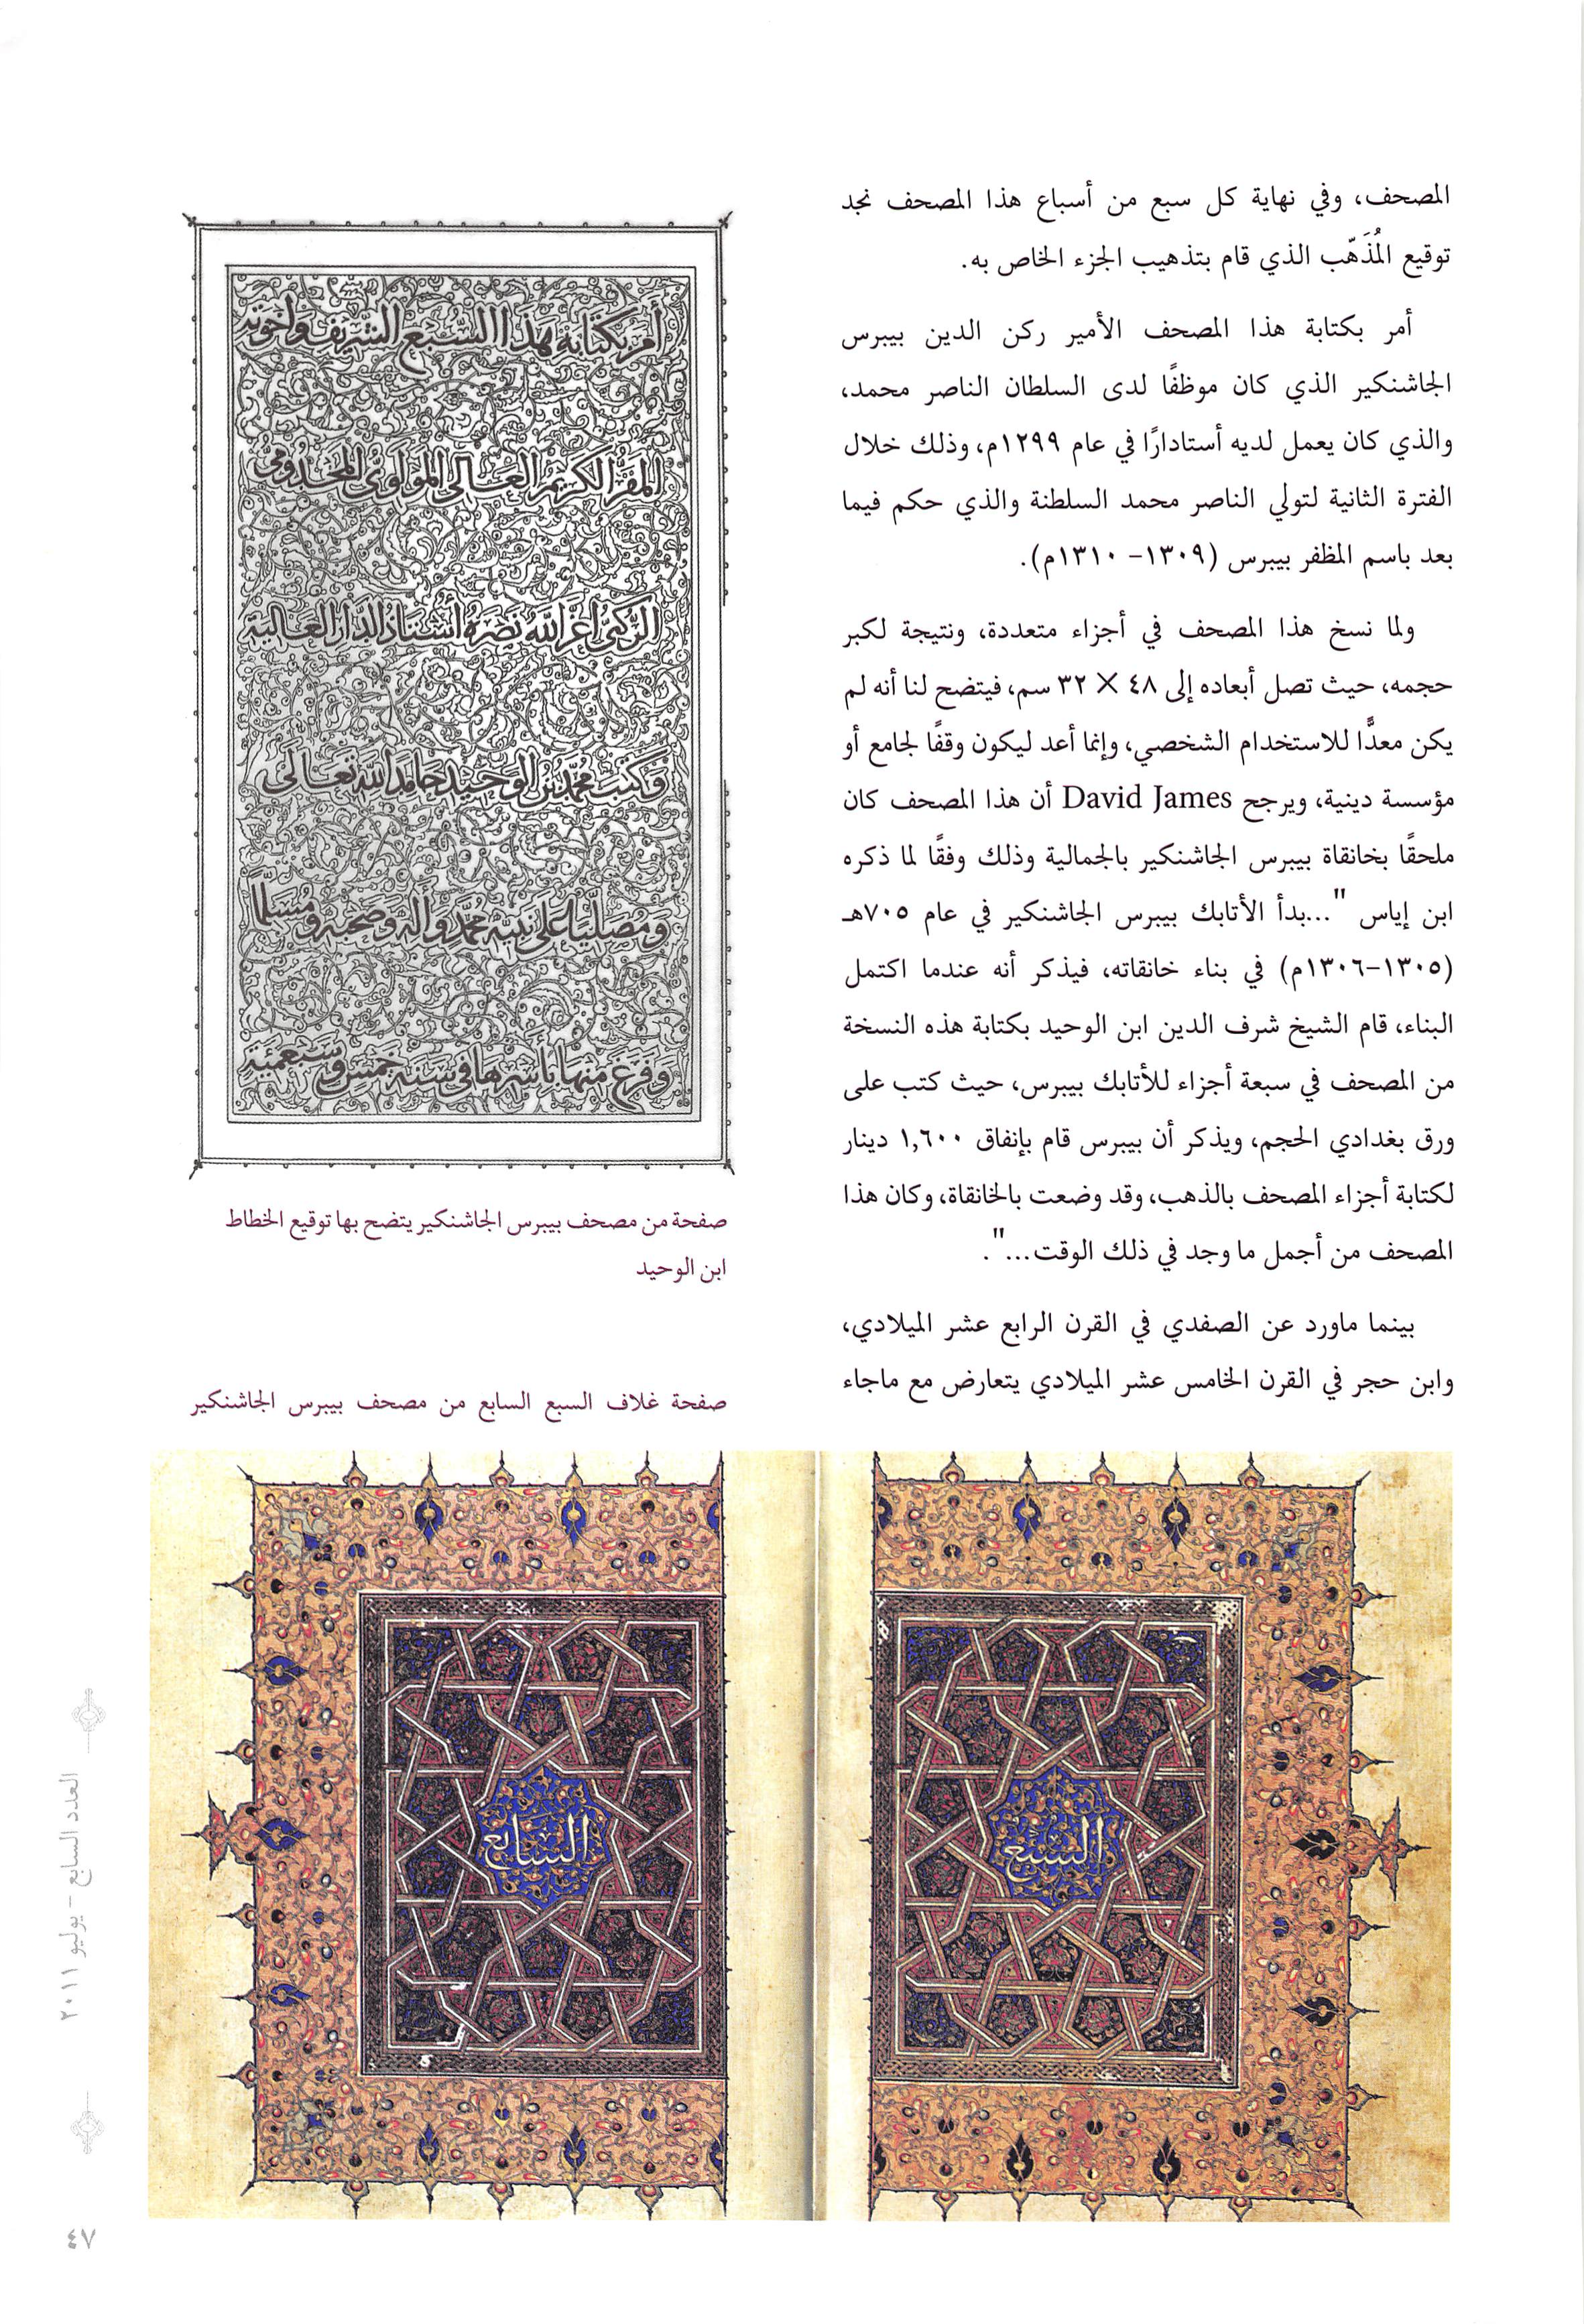 المصحف، وفي نهاية كل سبع من أسباع هذا المصحف نجد
توقيع المُذَهّب الذي قام بتذهيب الجزء الخاص به.
أمر بكتابة هذا المصحف الأمير ركن الدين بيبرس
الجاشنكير الذي كان موظفًا لدى السلطان الناصر محمد،
والذي كان يعمل لديه أستادارًا في عام ١٢٩٩م، وذلك خلال
الفترة الثانية لتولي الناصر محمد السلطنة والذي حكم فيما
بعد باسم المظفر بيبرس (١٣٠٩- ١٣١٠م).
ولما نسخ هذا المصحف في أجزاء متعددة، ونتيجة لكبر
حجمه، حيث تصل أبعاده إلى ٤٨ × ٣٢ سم، فيتضح لنا أنه لم
يكن معدًّا للاستخدام الشخصي، وإنما أعد ليكون وقفًا لجامع أو
مؤسسة دينية، ويرجح David James أن هذا المصحف كان
ملحقًا بخانقاة بيبرس الجاشنكير بالجمالية وذلك وفقًا لما ذكره
ابن إياس "...بدأ الأتابك بيبرس الجاشنكير في عام ٧٠٥هـ
(١٣٠٥-١٣٠٦م) في بناء خانقاته، فيذكر أنه عندما اكتمل
البناء، قام الشيخ شرف الدين ابن الوحيد بكتابة هذه النسخة
من المصحف في سبعة أجزاء للأتابك بيبرس، حيث كتب على
ورق بغدادي الحجم، ويذكر أن بيبرس قام بإنفاق ١,٦٠٠ دينار
لكتابة أجزاء المصحف بالذهب، وقد وضعت بالخانقاة، وكان هذا
المصحف من أجمل ما وجد في ذلك الوقت...".
بينما ماورد عن الصفدي في القرن الرابع عشر الميلادي،
وابن حجر في القرن الخامس عشر الميلادي يتعارض مع ماجاء
أمر بكتابة هذا السبع الشريف وإخوته
المقر الكريم العالى المولوى المخدومى
الركنى أعز الله نصره أستاذ الدار العالية
وكتب محمد بن الوحيد حامدا لله تعالى
ومصليا على نبيه محمد وآله وصحبه ومسلما
وفرغ منها بأسرها فى سنة خمس وسبعمئة
صفحة من مصحف بيبرس الجاشنكير يتضح بها توقيع الخطاط
ابن الوحيد
صفحة غلاف السبع السابع من مصحف بيبرس الجاشنكير
السبع
السابع
العدد السابع - يوليو ٢٠١١
٤٧